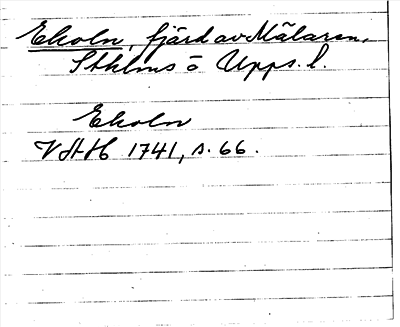 Ekoln, fjärd av Mälaren,
Sthlms o Upps. l.
Ekoln
VAH 1741, s. 66.